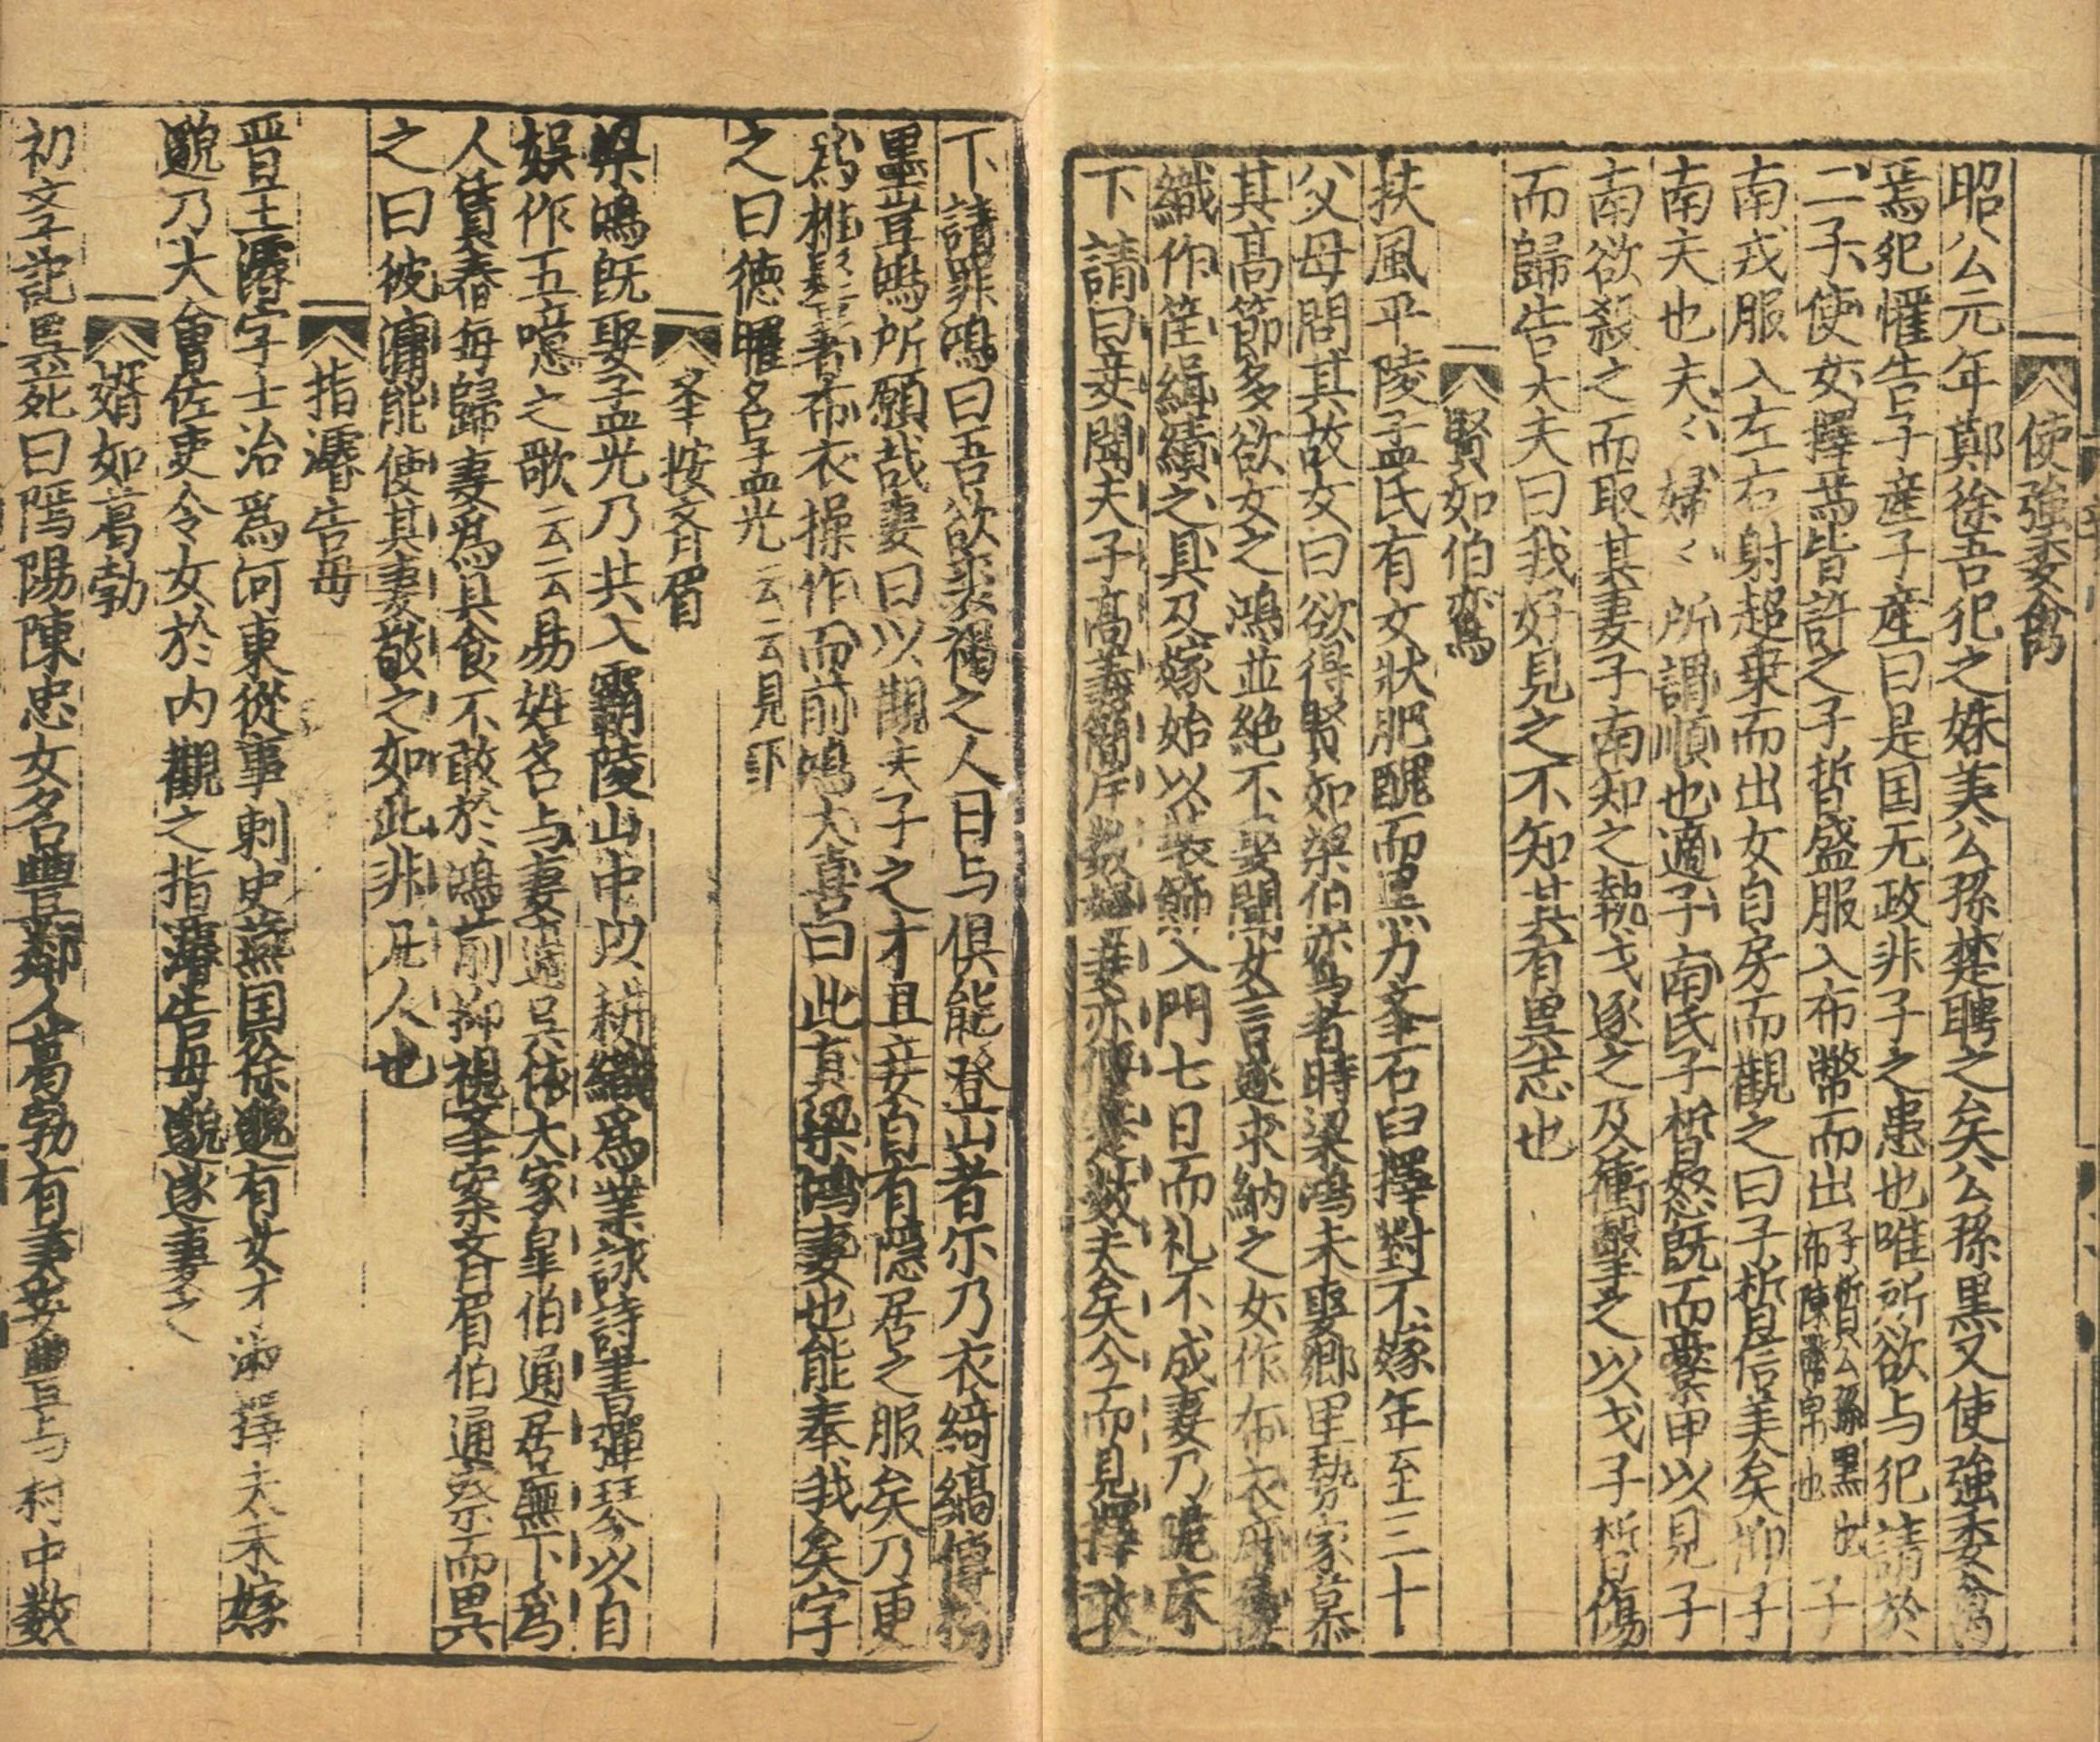 使強委禽
昭公元年鄭徐吾犯之妹美公孫楚聘之矣公孫黒又使強委禽
焉犯懼告子産子産曰是国无政非子之患也唯所欲与犯請於
二子使女擇焉皆許之子晳盛服入布幣而出子晳公孫黒也布陳贄帛也子
南戎服入左右射超乗而出女自房而觀之曰子晳信美矣抑子
南夫也夫〻婦〻所謂順也適子南氏子晳怒既而櫜甲以見子
南欲殺之而取其妻子南知之執戈逐之及衝擊之以戈子晳傷
而歸告大夫曰我好見之不知其有異志也
賢如伯鸞
扶風平陵孟氏有女狀肥醜而黒力夆石臼擇對不嫁年至三十
父母問其故女曰欲得賢如梁伯鸞者時梁鴻未娶鄉里勢家慕
其高節多欲女之鴻並絶不娶聞女言遂求納之女作布衣麻屨
織作筐緝績之具及嫁始以裝飾入門七日而礼不成妻乃跪床
下請曰妾聞夫子高義簡斥数婦妾亦偃蹇数夫矣今而見擇敢
下請罪鴻曰吾欲裘褐之人曰与俱能登山者尔乃衣綺縞傅粉
墨豈鴻所願哉妻曰以觀夫子之才且妾自有隱居之服矣乃更
為椎髻著布衣操作而前鴻大喜曰此真梁鴻妻也能奉我矣字
之曰徳曜名孟光云云見下
夆按斉眉
梁鴻既娶孟光乃共入霸陵山中以耕織爲業詠詩書彈琴以自
娯作五噫之歌云云易姓名与妻適呉依大家皐伯通居廡下爲
人賃舂毎歸妻爲具食不敢於鴻前抑視夆案斉眉伯通察而異
之曰彼傭能使其妻敬之如此非凡人也
指濬告母
晋王濬字士治爲河東從事刺史燕国徐邈有女才淑擇夫未嫁
邈乃大會佐吏令女於内觀之指濬告母邈遂妻之
婿如葛勃
初文字記異苑曰隲陽陳忠女名豊鄰人葛勃有美姿豊与村中数